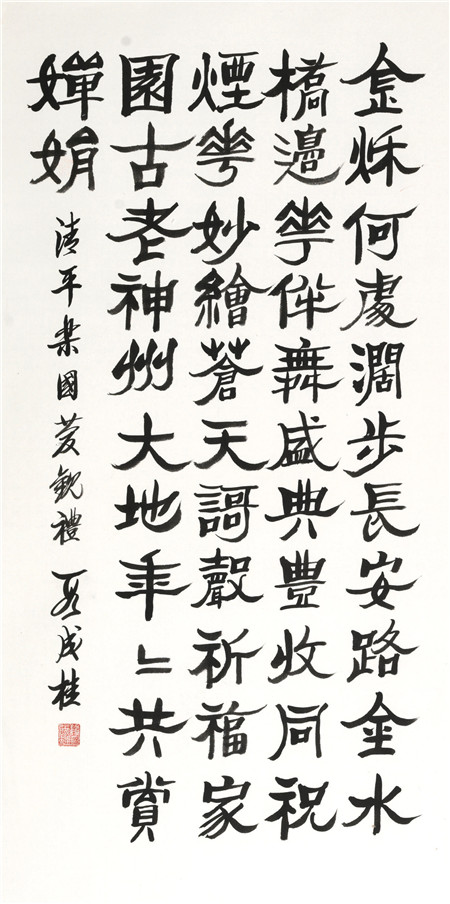 金秋何處濶步長安路金水
橋邊華伴舞盛典豐收同祝
煙華妙繪蒼天謌聲祈福家
園古老神州大地年〻共賞
嬋娟
清平樂國慶觀禮 段成桂